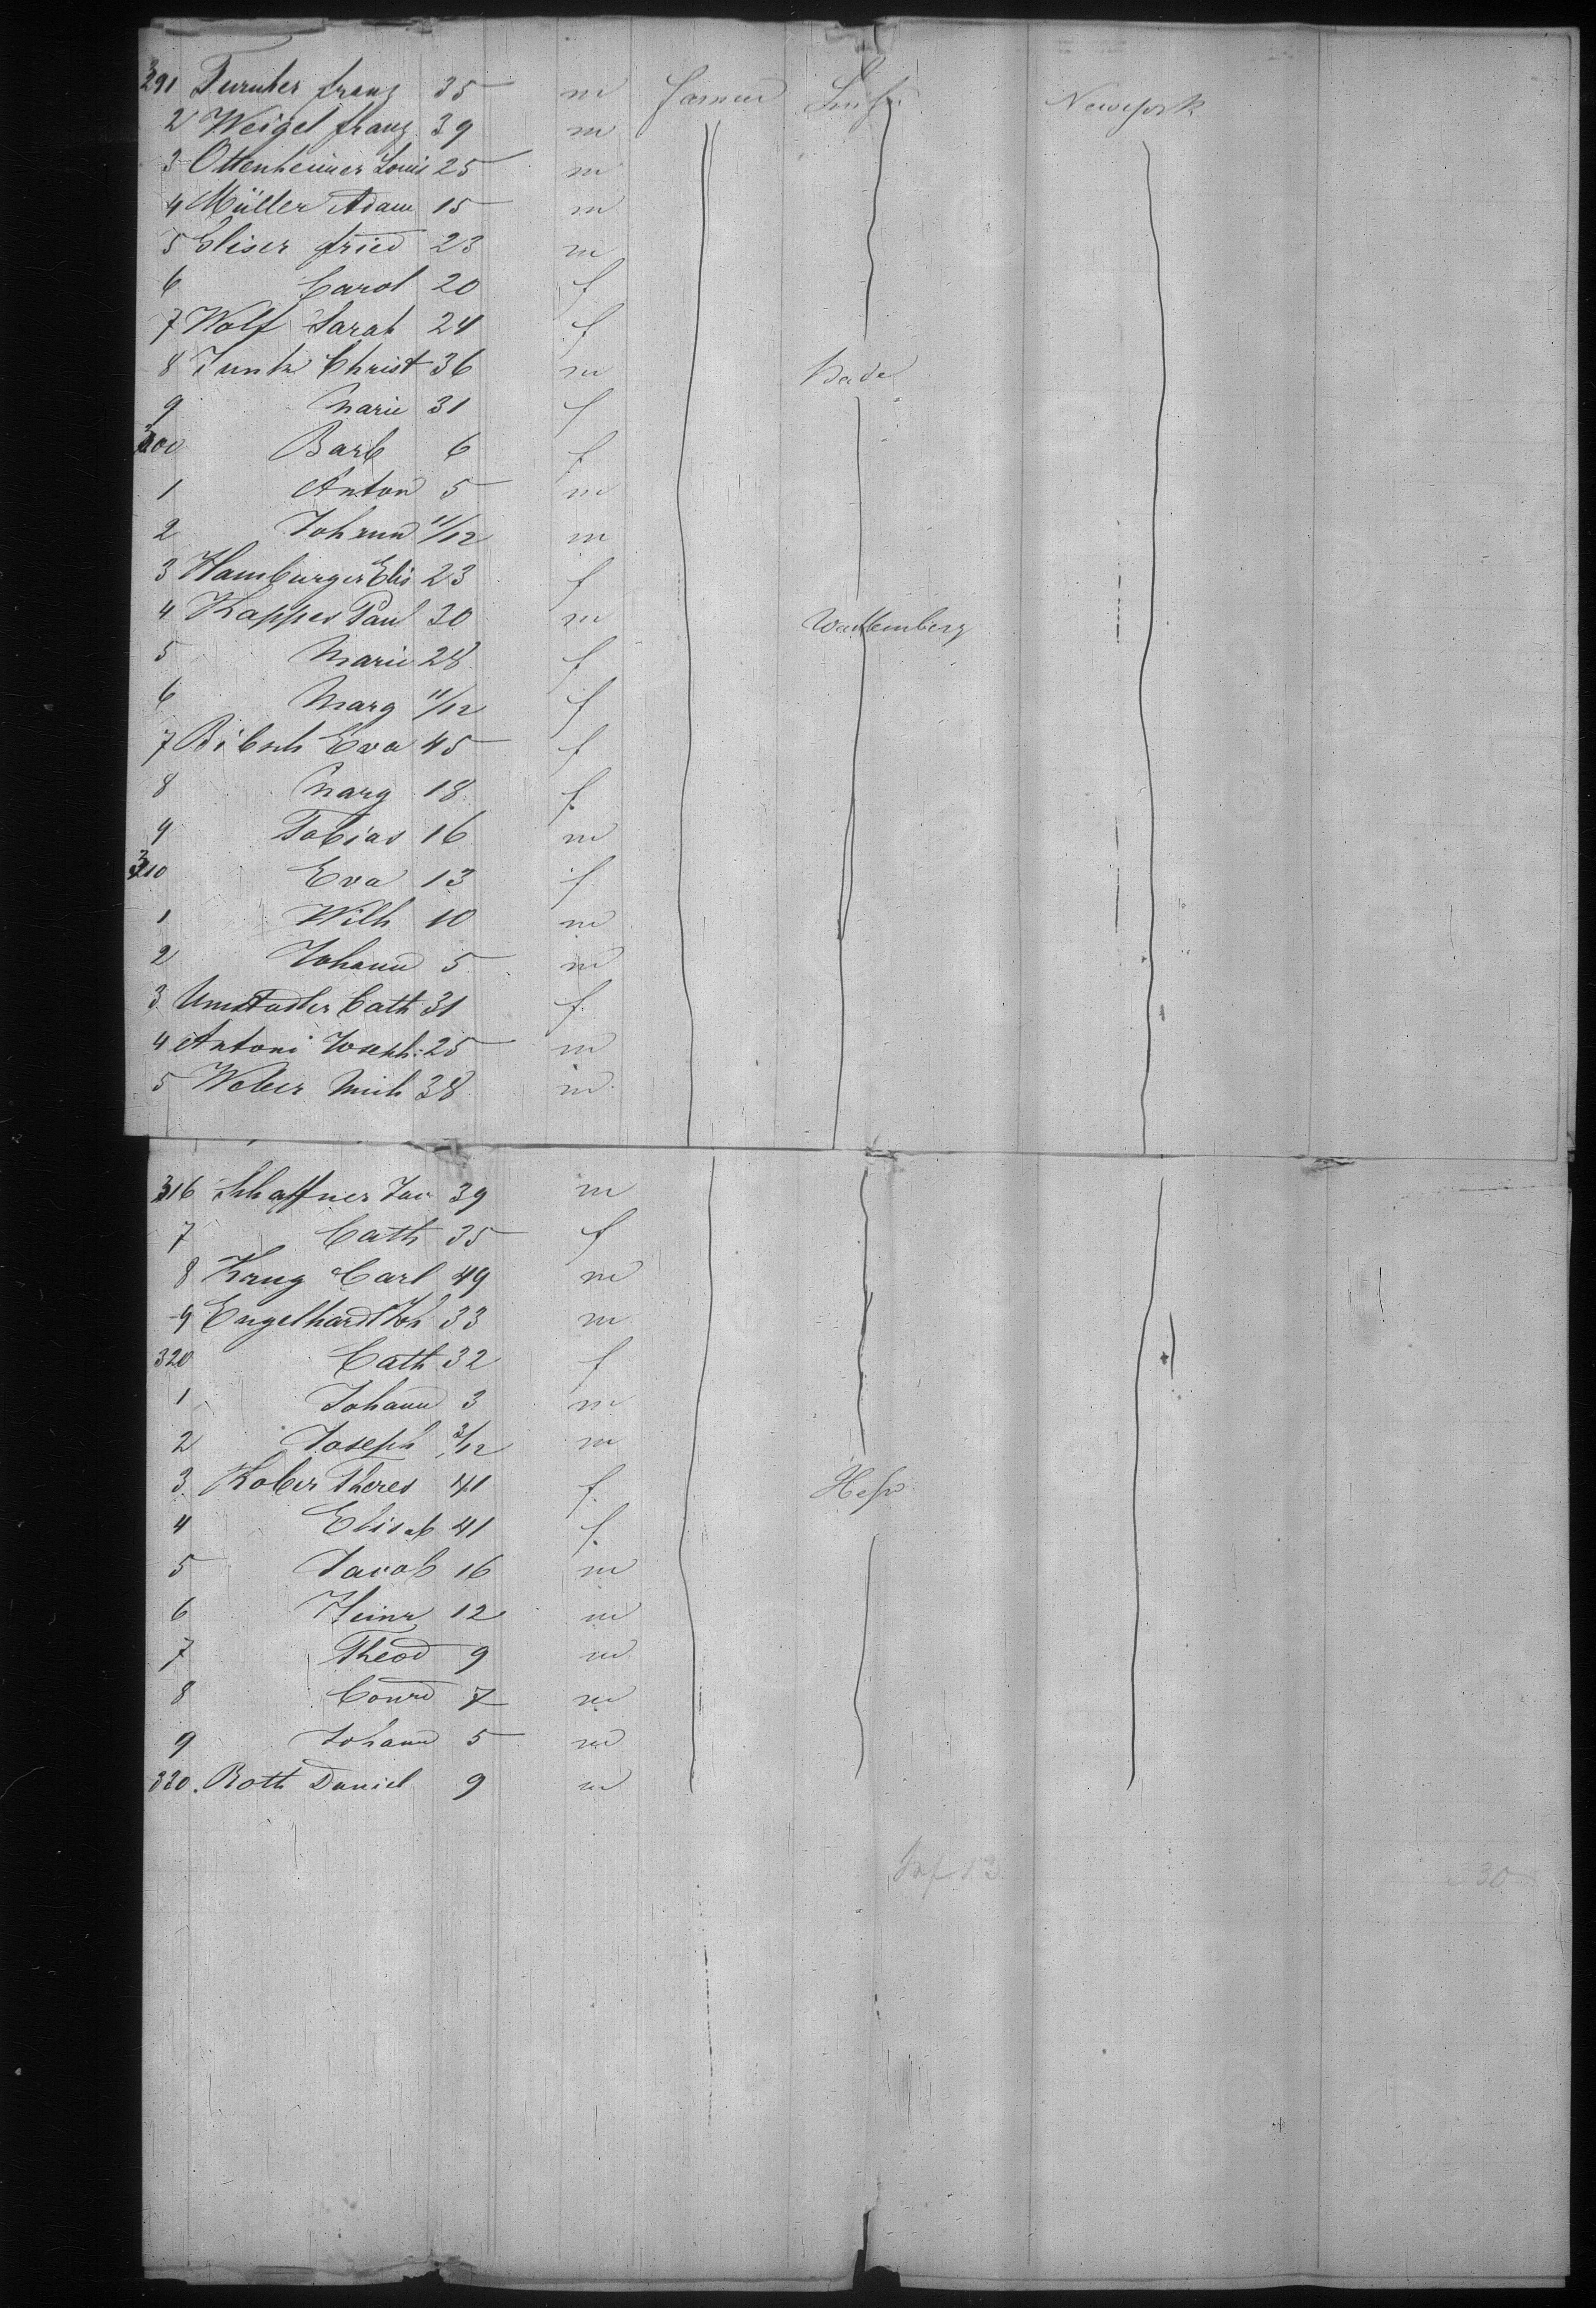 291 Turnher Franz 35 m Farmer Newyork
2 Weigel Franz 39 m
3 Ottenheimer Louis 25 m
4 Müller Adam 15 m
5 Eliser Fried 23 m
6 Carol 20 f
7 Wolf Sarah 24 f
8 Funk Christ 36 m Bade
9 Marie 31 f
300 Barb 6 f
1 Anton 5 m
2 Johann 11/12 m
3 Hamburger Elis 23 f
4 Kappes Paul 30 m Wurttemberg
5 Marie 28 f
6 Marg 11/12 f
7 Eva 45 f
8 Marg 18 f
9 Tobias 16 m
310 Eva 13 f
1 Wilh 10 m
2 Johann 5 m
3 Umstadter Cath 31 f
4 Antoni Joseph 25 m
5 Weber Mich 38 m
316 Schaffner Jac 39 m
7 Cath 35 f
8 Krug Carl 49 m
9 Engelhardt Joh 33 m
320 Cath 32 f
1 Johann 3 m
2 Joseph 3/12 m
3 Kober Theres 41 f Hesse
4 Elisab 41 f
5 Jacob 16 m
6 Heinr 12 m
7 Theod 9 m
8 Conrd 7 m
9 Johann 5 m
330. Roth Daniel 9 m
330